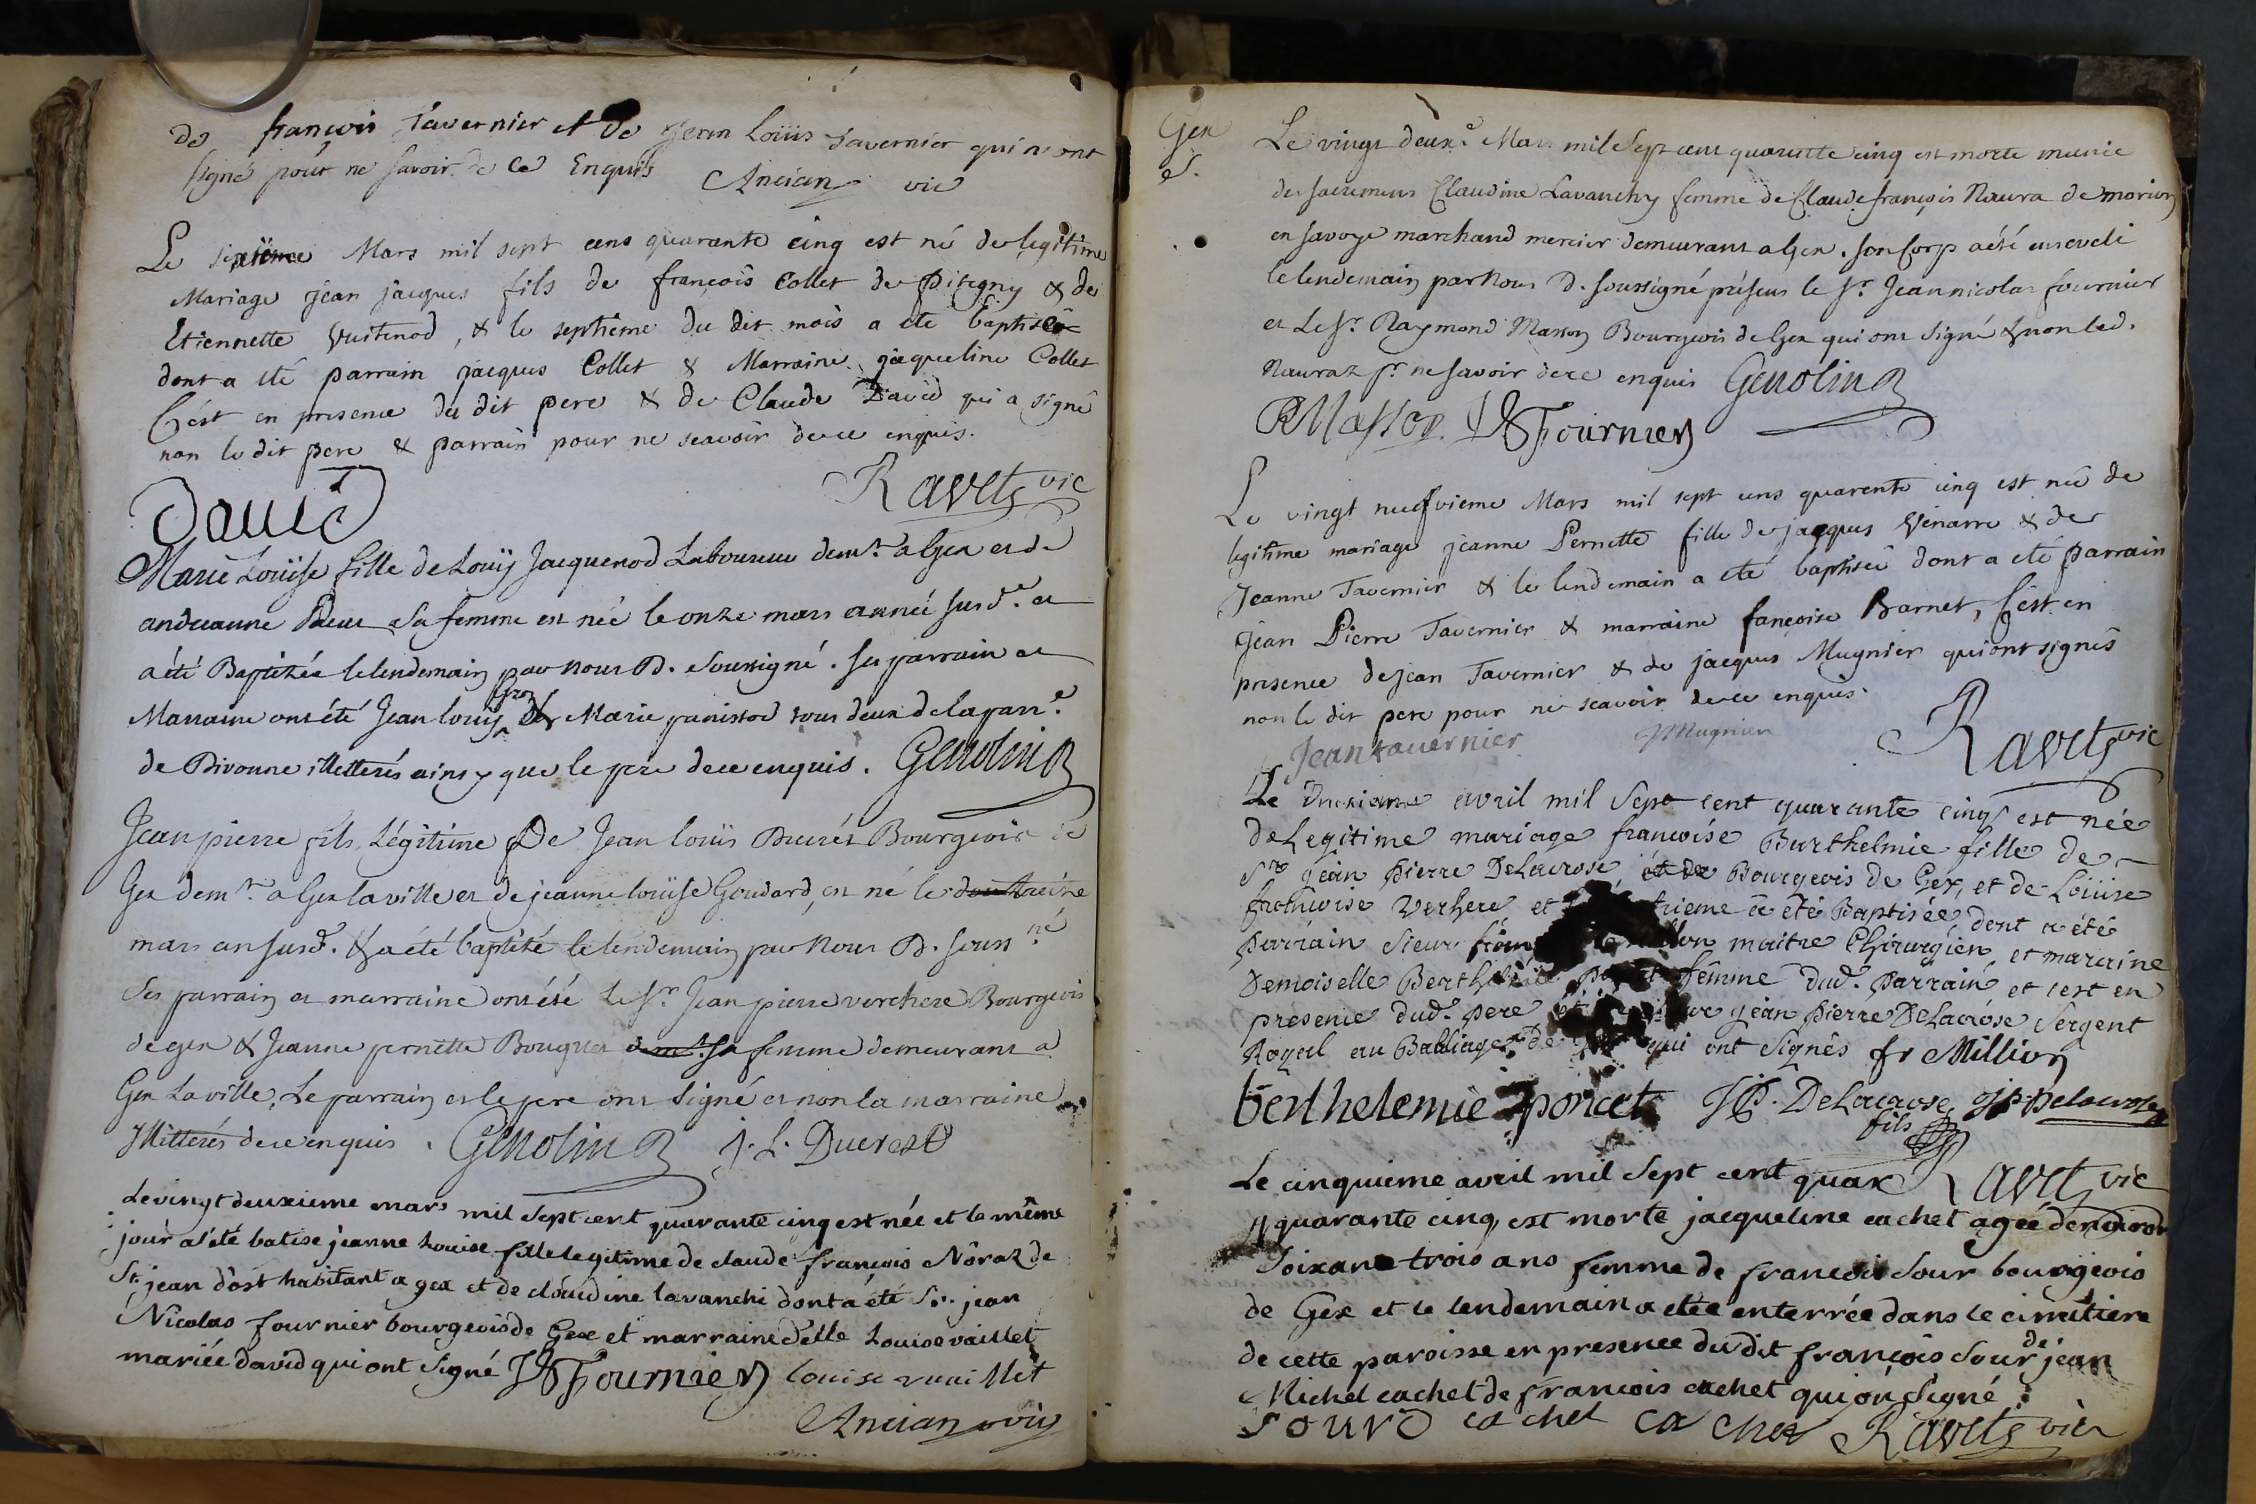 de françois Tavernier et de Jean Loüis Tavernier qui n'ont
signé pour ne savoir de ce Enquis Ancian vic
Le sixième Mars mil sept cens quarante cinq est né de legitime
Mariage jean jacques fils de françois Collet de Pitegny & de
Etiennette Vuitenod, & le septième du dit mois a été baptisé
dont a été parrain jacques Collet & Marraine jacqueline Collet
C'est en presence du dit pere & de Claude David qui a signé
non le dit pere & parrain pour ne scavoir de ce enquis.
David Ravets vic
Marie Loüise fille de Louis Jacquenod Laboureur demt. a Gex et de
sa femme est née le onze mars année susd.e et
a été Baptizée le lendemain par nous D. soussigné. ses parrain et
Maraine ont été Jean louis Gros & Marie panissod tous deux de la parr.e
de Divonne illetterés ainsy que le pere de ce enquis. Genolin D
Jean pierre fils Légitime De Jean loüis Ducrêt Bourgeois de
Gex demt. a Gex la ville et de jeanne loüise Goudard, est né le
mars an susd. & a été baptisé le lendemain par nous D. souss.né
Ses parrain et marraine ont été le Sr. Jean pierre verchere Bourgeois
de gex & Jeanne pernette Bouquet demt. sa femme demeurant a
Gex La ville, Le parrain et le pere ont signé et non la marraine
Illitterés de ce enquis. Genolin D J. L. Ducrest
Le vingt deuxieme mars mil sept cent quarante cinq est née et le même
jour a'été batise jeanne Louise fille legitime de claude françois Nôraz de
St. jean d'ost habitant a gex et de cloudine lavanchi dont a été Sr. jean
Nicolas fournier bourgeois de Gex et marraine delle Louise vaillet
mariée david qui ont signé JN Fournier louise vuaillet
Ancian vic
Gex
S.
Le vingt deux.e Mars mil Sept cent quarante cinq est morte munie
des sacremens Claudine Lavanchy femme de Claude françois Naura de morion
en savoye marchand mercier demeurant a Gex. son Corp a été enseveli
le lendemain par Nous D. soussigné présens le Sr. Jean nicolas fournier
et Le Sr. Raymond Masson Bourgeois de Gex qui ont signé & non led.
Nauraz pr. ne savoir de ce enquis Genolin D
R Masson JN Fournier
Le vingt neufvieme Mars mil sept cens quarente cinq est née de
legitime mariage jeanne Pernette fille de jacques Vénarre & de
Jeanne Tavernier & le lendemain a été baptisée dont a été parrain
Jean Pierre Tavernier & marraine fançoise Barnet, C'est en
presence de jean Tavernier & de jacques Mugnier qui ont signés
non le dit pere pour ne scavoir de ce enquis.
Jean tavernier J Mugnier Ravets vic
Le Deuxieme avril mil Sept cent quarante cinq est née
de Legitime mariage françoise Barthelmie fille de
Sr. jean pierre DeLacrose, Bourgeois de Gex, et de Loüise
françoise Verhere et trieme a été Baptisée, dont a été
parrain Sieur fran maitre Chirurgien et maraine
Demoiselle Berth femme dud. parrain et cest en
presence dud. pere jean pierre DeLacrose Sergent
Royal au Balliage de qui ont Signés fr Million
berthelemie poncet JP. DeLacrose fils JP Delacrose
Ravets vic
Le cinquieme avril mil sept cent quar
quarante cinq est morte jacqueline cachet agée denviron
Soixante trois ans femme de françois Sour bourgeois
de Gex et le lendemain a etée enterrée dans le cimetiere
de cette paroisse en presence du dit françois Sour de jean
Michel cachet de françois cachet qui on signé
SOURD cachet cachet Ravets vic